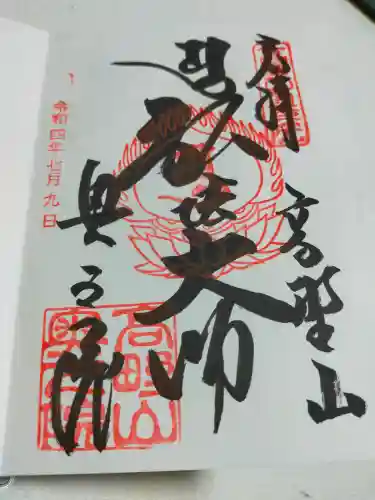 奉拝
高野山
弘法大師
奥之院
令和四年七月九日
高野山
奥之院